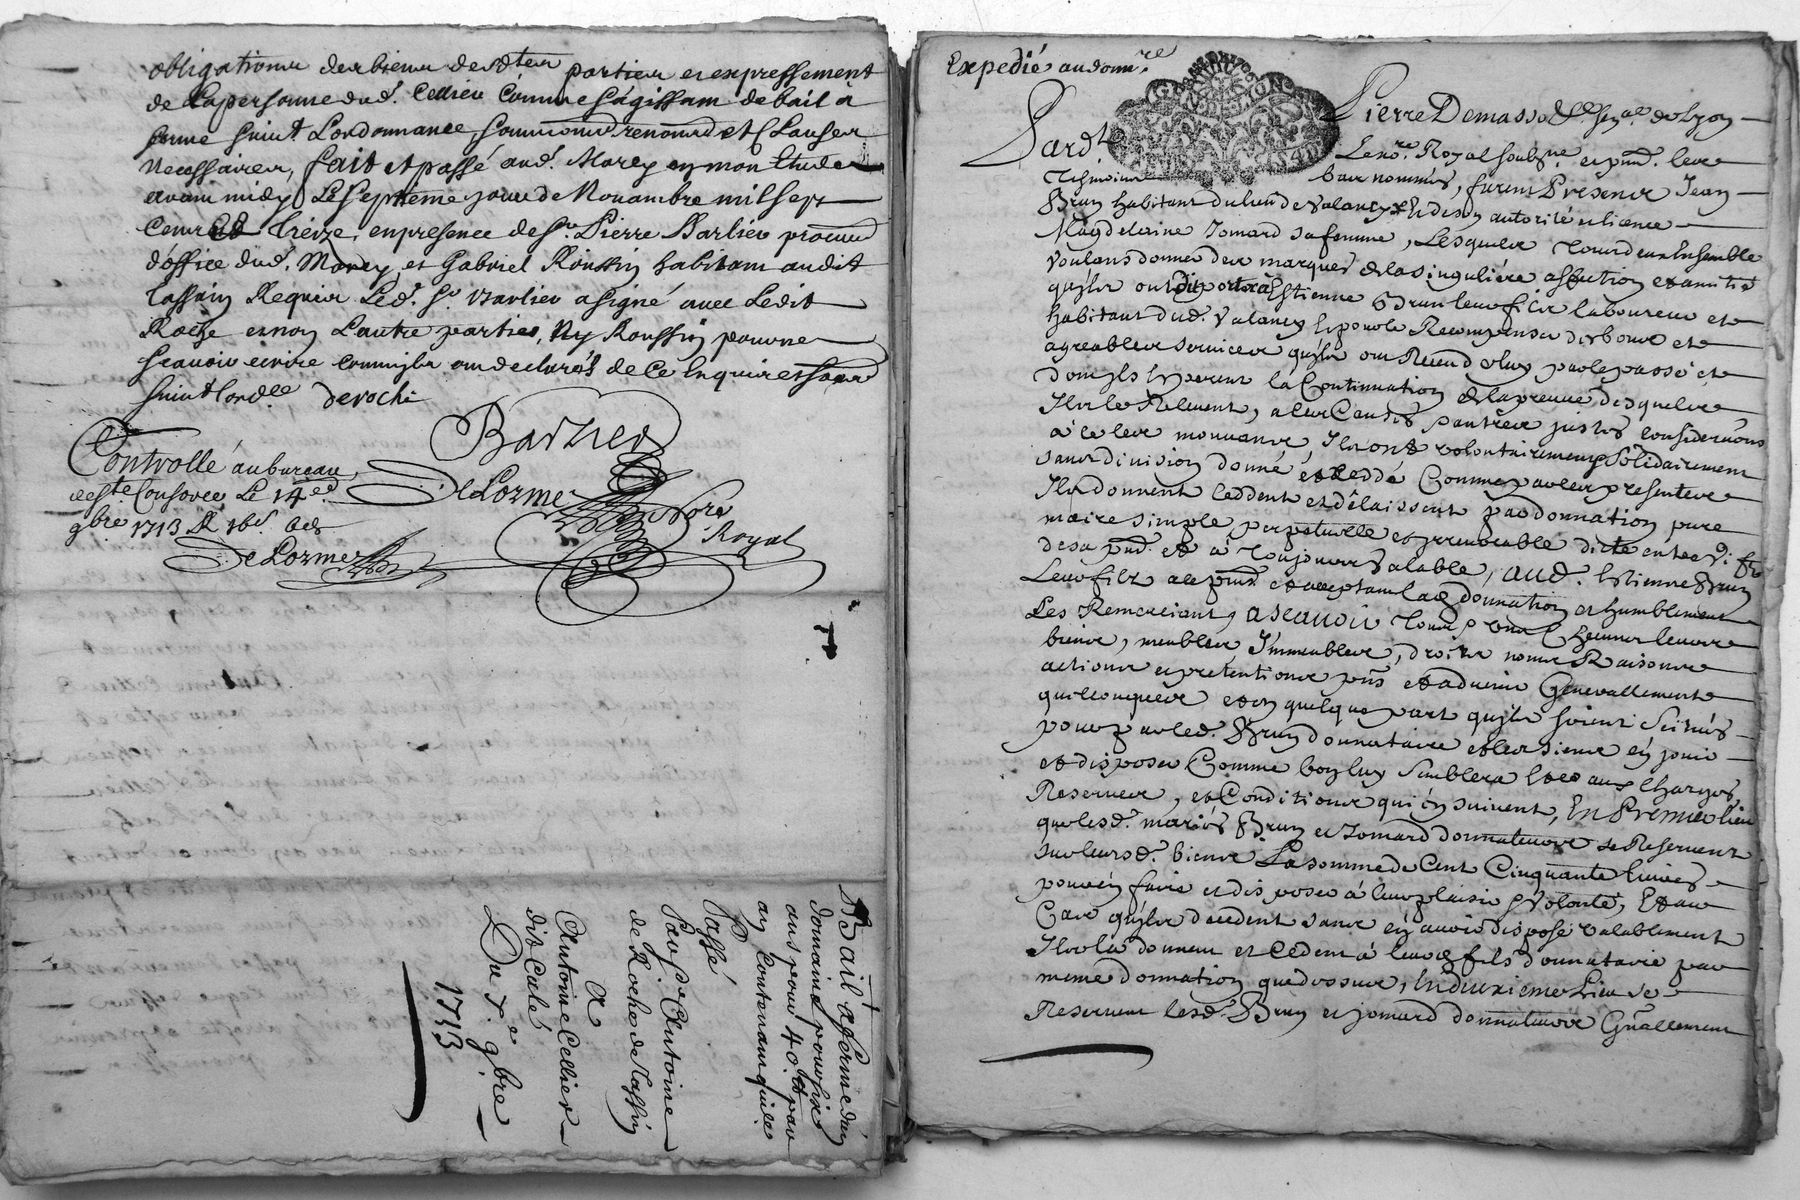 obligations des biens desd. parties et expressement
de la personne dud. Cellier Comme s'agissant de bail a
ferme suivt. L'ordonnance, soumions renonons et Clauses
necessaires, fait et passé aud. Morey en mon Etude
avant midy Le septieme jour de Novambre mil sept
Cent et Treize, en presence de Sr. Pierre Barlier procur
d'office dud. Morey et Gabriel Roussin habitant audit
Tassin Requis Led. Sr. Barlier a signé avec Ledit
Roche et non L'autre partie, Ny Roussin pour ne
scavoir ecrire comm'jls ont declaréz de Ce Enquis et
suivt. lord. deroche
Barlier
Controllé au bureau
de Ste. Consorce Le 14e.
9bre 1713
DeLorme
DeLorme Nore
Royal
Bail a ferme d'un
domaine pour six
ans pour 40 par
an Contenant quil.
Passé
Par Sr. Antoine
de Roche de Tassin
A
Antoine Cellier
dit Calé
Du 7.e 9bre
1713
Expedié au donnre
Pardt. Pierre Demasso de Lyon
Le nore. Royal soubzne et pnt. les
Tesmoins bas nommés, furent Presens Jean
Brun habitant du lieu de Valancy Et de son autorité et licence
Magdeleine Jomard sa femme, Lesquels Tous deux Ensemble
Voulans donner des marques de la singuliére affection et amitié
qu'jls ont Estienne Brun leur fils laboureur et
habitant dud. Valancy Et pour le Recompenser des bons et
agreables services qu'jls ont Receu de luy par le passé et
dont jls Esperent la Continuation de la preuve desquels
Jls le Relevent, a les Causes et autres justes Considerations
a ce les mouvans Jls ont volontairement Solidairement
sans division donné et Ceddé Comme par ces presentes
Jls donnent Ceddent et délaissent par donnation pure
maire simple perpetuelle et jrrevocable dicte entre vifs
des a pnt. et a Toujours Valable, aud. Estienne Brun
Leur fils acce pnt. et acceptant lad. donnation et humblement
Les Remerciant, ascavoir Tous et Un Chacuns leurs
biens, meubles Jmmeubles, droits noms Raisons
actions et pretentions pns. et advenir Generallement
quelconques et en quelque part qu'jls soient Scitués
pour par led. Brun donnataire et les siens en jouir
et disposer Comme bon luy Semblera Et ce aux Charges
Reserves, et Conditions qui en suivent, En Premier lieu
que lesd. mariés Brun et Jomard donnateurs se Reservent
sur leursd. biens La somme de Cent Cinquante Livres
pour en faire et disposer a leur plaisir et Volonté, Et au
Cas qu'jls decedent sans en avoir disposé valablement
Jls la donnent et Cedent a leurd. fils donnataire par
meme donnation que dessus, En deuxieme Lieu se
Reservent lesd. Brun et jomard donnateurs Gñallement